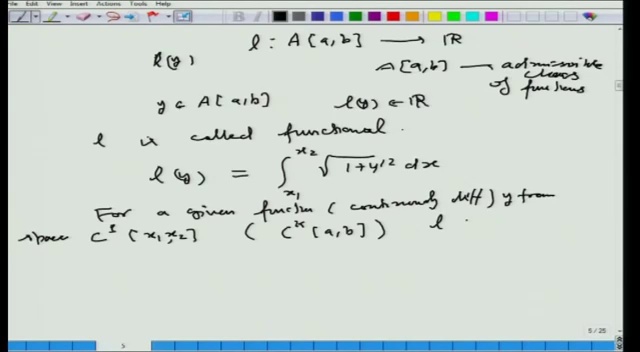 File Edit View Insert Actions Tools Help
l : A[a,b] ⟶ ℝ
l(y)
A[a,b] — admissible class of functions
y ∈ A[a,b]   l(y) ∈ ℝ
l is called functional.
l(y) = ∫_{x₁}^{x₂} √(1+y'²) dx
For a given function (continuously diff) y from
space C¹[x₁,x₂]   ( Cᴷ[a,b] )   l
5 / 25
5